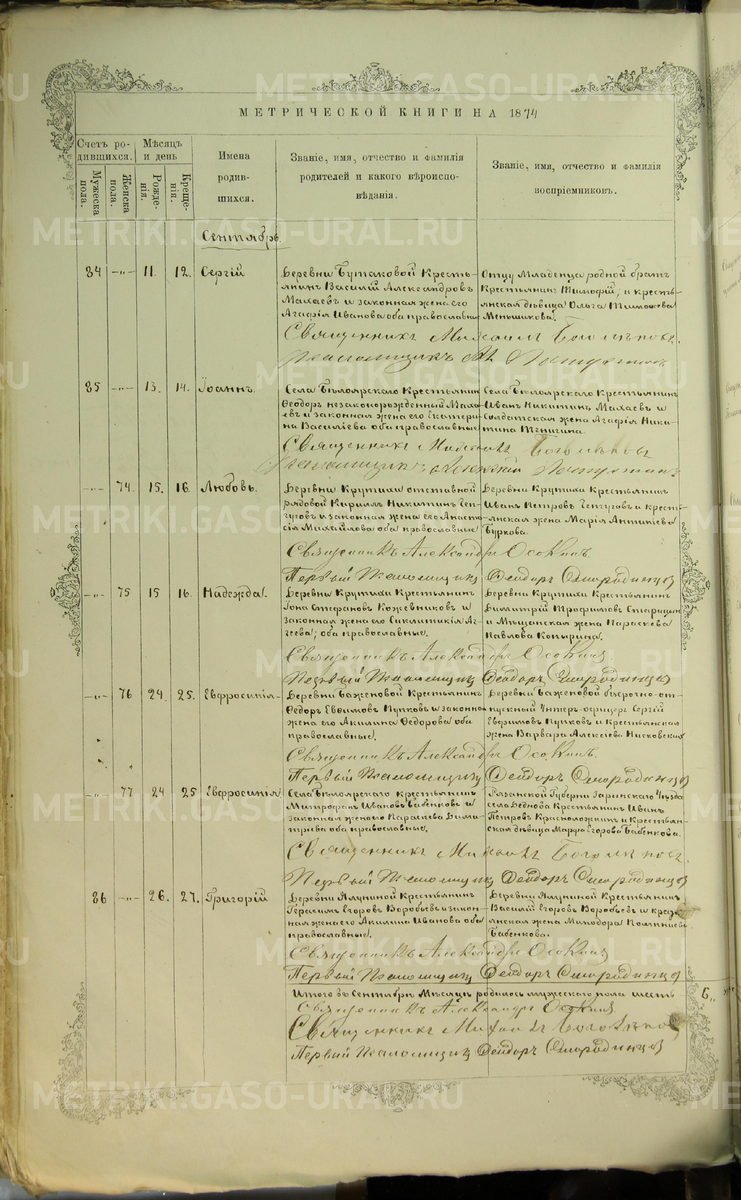 МЕТРИЧЕСКОЙ КНИГИ НА 1874
Счетъ родившихся.
Мужеска пола.
Женска пола.
Мѣсяцъ и день
Рожденія.
Крещенія.
Имена родившихся.
Званіе, имя, отчество и фамилія родителей и какого вѣроисповѣданія.
Званіе, имя, отчество и фамилія воспріемниковъ.
Сентябрь
84 -"- 11. 12. Сергій
Деревни Бутаковой Крестьянинъ Василій Александровъ
Махаевъ и законная жена его
Агафія Иванова оба православные
Отцу Младенца родной братъ
Крестьянинъ Тимофій, и крестьянская дѣвица Ольга
Меньшикова.
Священникъ Михаилъ
85 -"- 13. 14. Іоаннъ
Села Бѣлоярскаго Крестьянинъ
Ѳеодоръ незаконорожденный Махаевъ и законная жена его Екатерина Василіева оба православные
Села Бѣлоярскаго Крестьянинъ
Иванъ Никитинъ Махаевъ и
Солдатская жена Агафія Никитина
Священникъ Михаилъ
-"- 74. 15. 16. Любовь.
Деревни Крутихи отставной
рядовой Кириллъ Никитинъ
и законная жена его Анастасія Михайлова оба православные
Деревни Крутихи Крестьянинъ
Иванъ Петровъ и крестьянская жена Марія
Буркова.
Священникъ Александръ Осокинъ
Первый Псаломщикъ Ѳеодоръ Смородинцовъ
-"- 75 15 16. Надежда.
Деревни Крутихи Крестьянинъ
Іона Стефановъ Кожевниковъ и
законная жена его Синклитикія
оба православные.
Деревни Крутихи Крестьянинъ
Димитрій Трофимовъ Старицинъ
и Мѣщанская жена Параскева
Павлова Копырина.
Священникъ Александръ Осокинъ
Первый Псаломщикъ Ѳеодоръ Смородинцовъ
-"- 76 24. 25. Евфросинія
Деревни Баженовой Крестьянинъ
Ѳедоръ Евфимовъ Пупковъ и законная
жена его Акилина Ѳедорова оба
православные.
Деревни Баженовой безсрочно-отпускный Унтеръ-офицеръ Сергій
Евфимовъ Пупковъ и Крестьянская
жена Варвара Алексѣева
Священникъ Александръ Осокинъ
Первый Псаломщикъ Ѳеодоръ Смородинцовъ
-"- 77 24 25 Евфросинія
Села Бѣлоярскаго Крестьянинъ
Митрофанъ Ивановъ Бабенковъ и
законная жена его Параскева Димитріева оба православные.
Рязанской Губерніи Зарайскаго Уѣзда
села Крестьянинъ Иванъ
Петровъ и Крестьянская дѣвица Марфа Егорова Бабенкова.
Священникъ Михаилъ
Первый Псаломщикъ Ѳеодоръ Смородинцовъ
86 -"- 26. 27. Григорій
Деревни Ялуниной Крестьянинъ
Герасимъ Егоровъ Воробьевъ и законная жена его Акилина Иванова оба
православные.
Деревни Ялуниной Крестьянинъ
Василій Егоровъ Воробьевъ и крестьянская жена
Бабенкова.
Священникъ Александръ Осокинъ
Первый Псаломщикъ Ѳеодоръ Смородинцовъ
Итого въ Сентябрѣ Мѣсяцѣ родилось мужескаго пола шесть 6,,
Священникъ Александръ Осокинъ
Священникъ Михаилъ
Первый Псаломщикъ Ѳеодоръ Смородинцовъ
METRIKI.GASO-URAL.RU